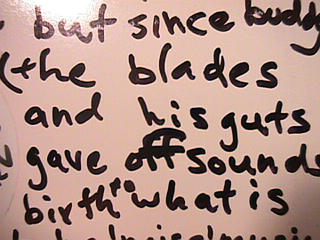 but since buddy
(the blades
and his guts
gave off sounds
birth" what is